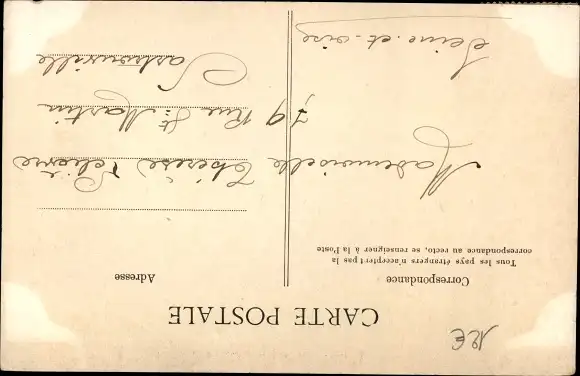 CARTE POSTALE
Correspondance
Tous les pays étrangers n'acceptent pas la
correspondance au recto, se renseigner à la Poste
Adresse
Mademoiselle Thérèse
79 Rue St Martin
Sartrouville
Seine-et-oise
12E